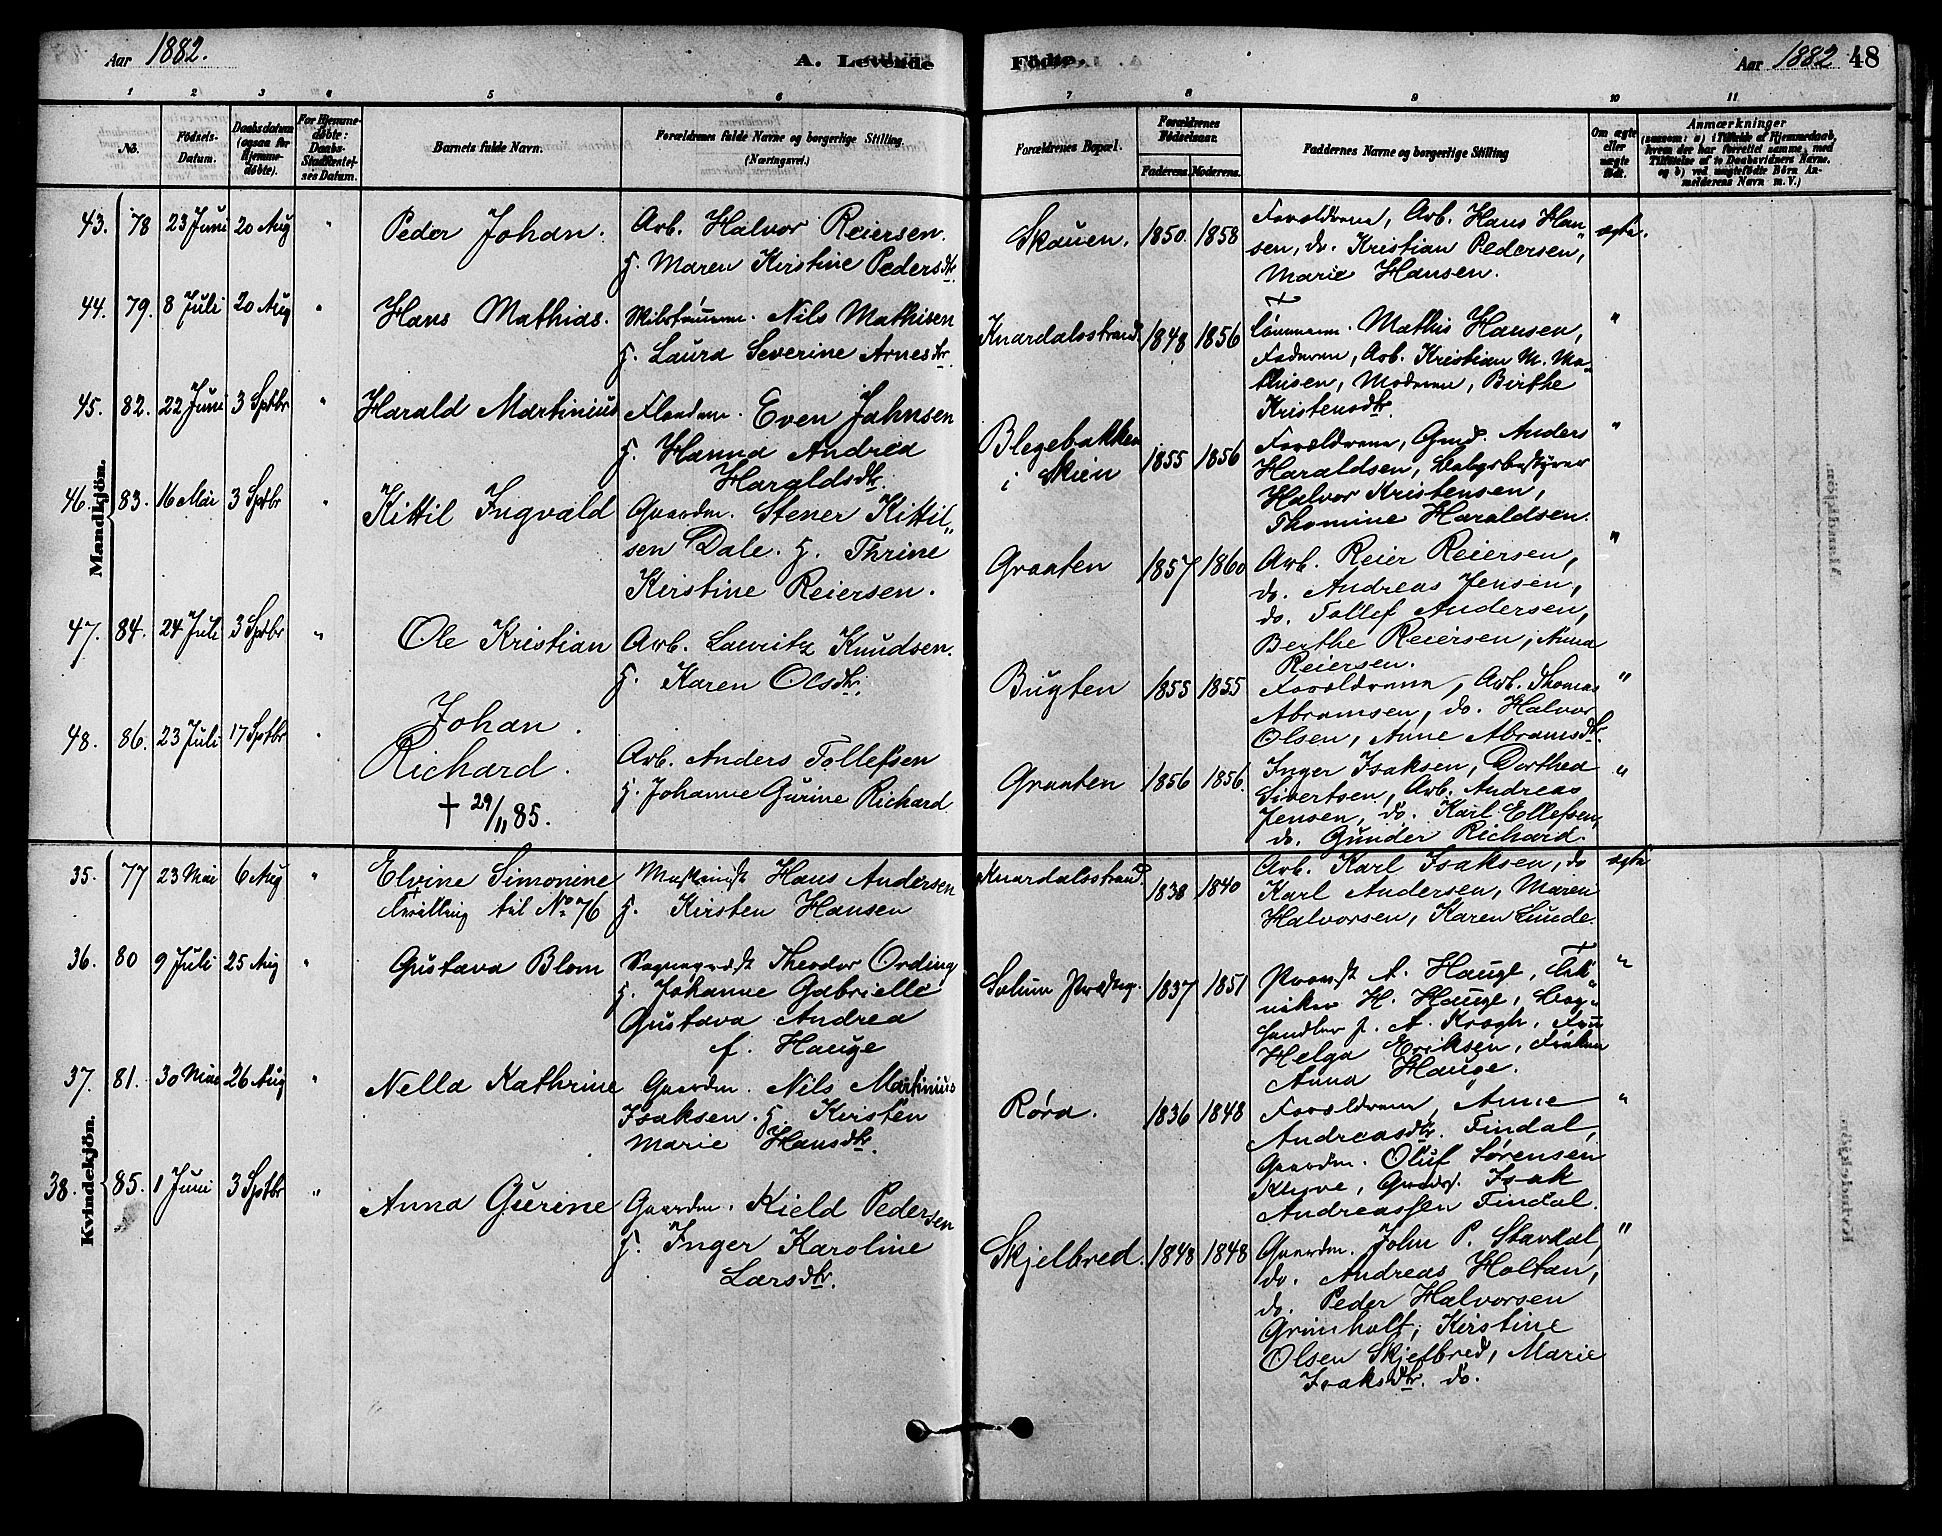 Aar 1882.
A. Levende
Födte.
Aar 1882 48
1 2 3 4 5 6 7 8 9 10 11
No.
Födsels-Datum.
Daabsdatum (ogsaa for Hjemmedöbte).
For Hjemmedöbte: Daabs-Stadfæstelses Datum.
Barnets fulde Navn.
Forældrenes fulde Navne og borgerlige Stilling (Næringsvei.)
Forældrenes Bopæl.
Forældrenes Födselsaar.
Faderens. Moderens.
Faddernes Navne og borgerlige Stilling
Om ægte eller uægte født.
Anmærkninger
Mandkjön.
43. 78 23 Juni 20 Aug " Peder Johan. Arb. Halvor Reiersen.
H. Maren Kirstine Pedersdtr.
Skauen. 1850. 1858 Forældrene, Arb. Hans Han- ægte.
sen, do. Kristian Pedersen,
Marie Hansen.
44. 79. 8 Juli 20 Aug " Hans Mathias. Nils Mathisen
H. Laura Severine Arnesdtr.
Knardalsstrand. 1848 1856 Mathis Hansen, "
Faderen, Arb. Kristian M. Ma-
thisen, Moderen, Birthe
Kristensdtr.
45. 82. 22 Juni 3 Sptbr " Harald Martinius Even Jahnsen
H. Hanna Andrea
Haraldsdtr.
Blegebakken
i Skien 1855 1856 Forældrene, Gmd. Anders "
Haraldsen, Bolagsbestyrer
Halvor Kristensen,
Thomine Haraldsen.
46. 83. 16 Mai 3 Sptbr " Kittil Ingvald Gaardm. Stener Kittil-
sen Dale. H. Thrine
Kirstine Reiersen.
Graaten 1857 1860 Arb. Reier Reiersen, "
do. Andreas Jensen,
do. Tollef Andersen,
Berthe Reiersen, Anna
Reiersen.
47. 84. 24 Juli 3 Sptbr " Ole Kristian Arb. Lauritz Knudsen.
H. Karen Olsdtr.
Bugten 1855 1855 Forældrene, Arb. Thomas "
Abramsen, do. Halvor
Olsen, Anne Abramsdtr.
48. 86. 23 Juli 17 Sptbr " Johan
Richard.
† 29/11 85.
Arb. Anders Tollefsen
H. Johanne Gurine Richard
Graaten 1856 1856. Inger Isaksen, Dorthea "
Sivertsen, Arb. Andreas
Jensen, do. Karl Ellefsen,
do. Gunder Richard.
Kvindekjön.
35. 77 23 Mai 6 Aug " Elvine Simonine Maskinist Hans Andersen
Tvilling til No 76 H. Kirsten Hansen
Knardalsstrand. 1838 1840 Arb. Karl Isaksen, do ægte
Karl Andersen, Maren
Halvorsen, Karen Lunde.
36. 80 9 Juli 25 Aug " Gustava Blom Sognepræst Theodor Ording
H. Johanne Gabrielle
Gustava Andrea
f. Hauge
Solum Præsteg. 1837 1851 Provst A. Hauge, "
H. Hauge, Bog-
handler J. A. Krogh, Fru
Helga Eriksen, Frøken
Anna Hauge.
37. 81. 30 Mai 26 Aug " Nella Kathrine Gaardm. Nils Martinius
Isaksen. H. Kirsten
Marie Hansdtr.
Røra. 1836 1848 Forældrene, Anne "
Andreasdtr. Findal,
Gaardm. Oluf Sørensen
Klyve, Isak
Andreassen Findal.
38. 85. 1 Juni 3 Sptbr " Anna Gurine Gaardm. Kield Pedersen
H. Inger Karoline
Larsdtr.
Skjelbred. 1848 1848 Gaardm. John P. Stavdal, "
do. Andreas Holtan,
do. Peder Halvorsen
Grimholt, Kirstine
Olsen Skjelbred, Marie
Isaksdtr. do.